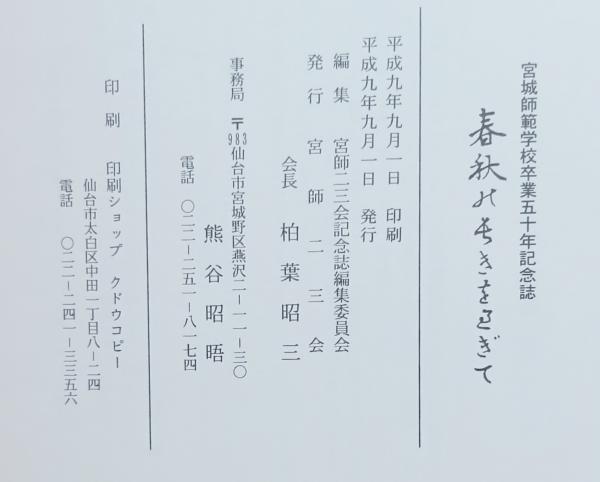 宮城師範学校卒業五十年記念誌
春秋の長きをすぎて
平成九年九月一日 印刷
平成九年九月一日 発行
編集 宮師二三会記念誌編集委員会
発行 宮師二三会
会長 柏葉昭三
事務局 〒983仙台市宮城野区燕沢二－一一－三〇
熊谷昭晤
電話 〇二二－二五一－八一七四
印刷 印刷ショップ クドウコピー
仙台市太白区中田一丁目八－二四
電話 〇二二－二四一－三三五六